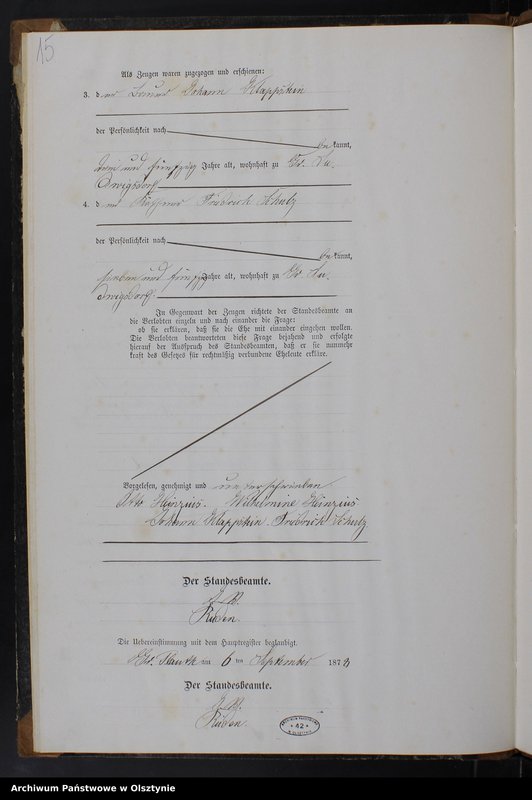 15
Als Zeugen waren zugezogen und erschienen:
3. der Bauer Johann Klappstein
der Persönlichkeit nach
bekannt,
drei und fünfzig Jahre alt, wohnhaft zu Gr. Lu-
dwigsdorf
4. der Käthner Friedrich Schulz
der Persönlichkeit nach
bekannt,
sieben und fünfzig Jahre alt, wohnhaft zu Gr. Lu-
dwigsdorf.
In Gegenwart der Zeugen richtete der Standesbeamte an
die Verlobten einzeln und nach einander die Frage:
ob sie erklären, daß sie die Ehe mit einander eingehen wollen.
Die Verlobten beantworteten diese Frage bejahend und erfolgte
hierauf der Ausspruch des Standesbeamten, daß er sie nunmehr
kraft des Gesetzes für rechtmäßig verbundene Eheleute erkläre.
Vorgelesen, genehmigt und unterschrieben
Otto Heinzius. Wilhelmine Heinzius
Johann Klappstein. Friedrich Schulz
Der Standesbeamte.
Die Uebereinstimmung mit dem Hauptregister beglaubigt.
Gr. Plauth am 6 ten September 187
Der Standesbeamte.
* 42 *
Archiwum Państwowe w Olsztynie